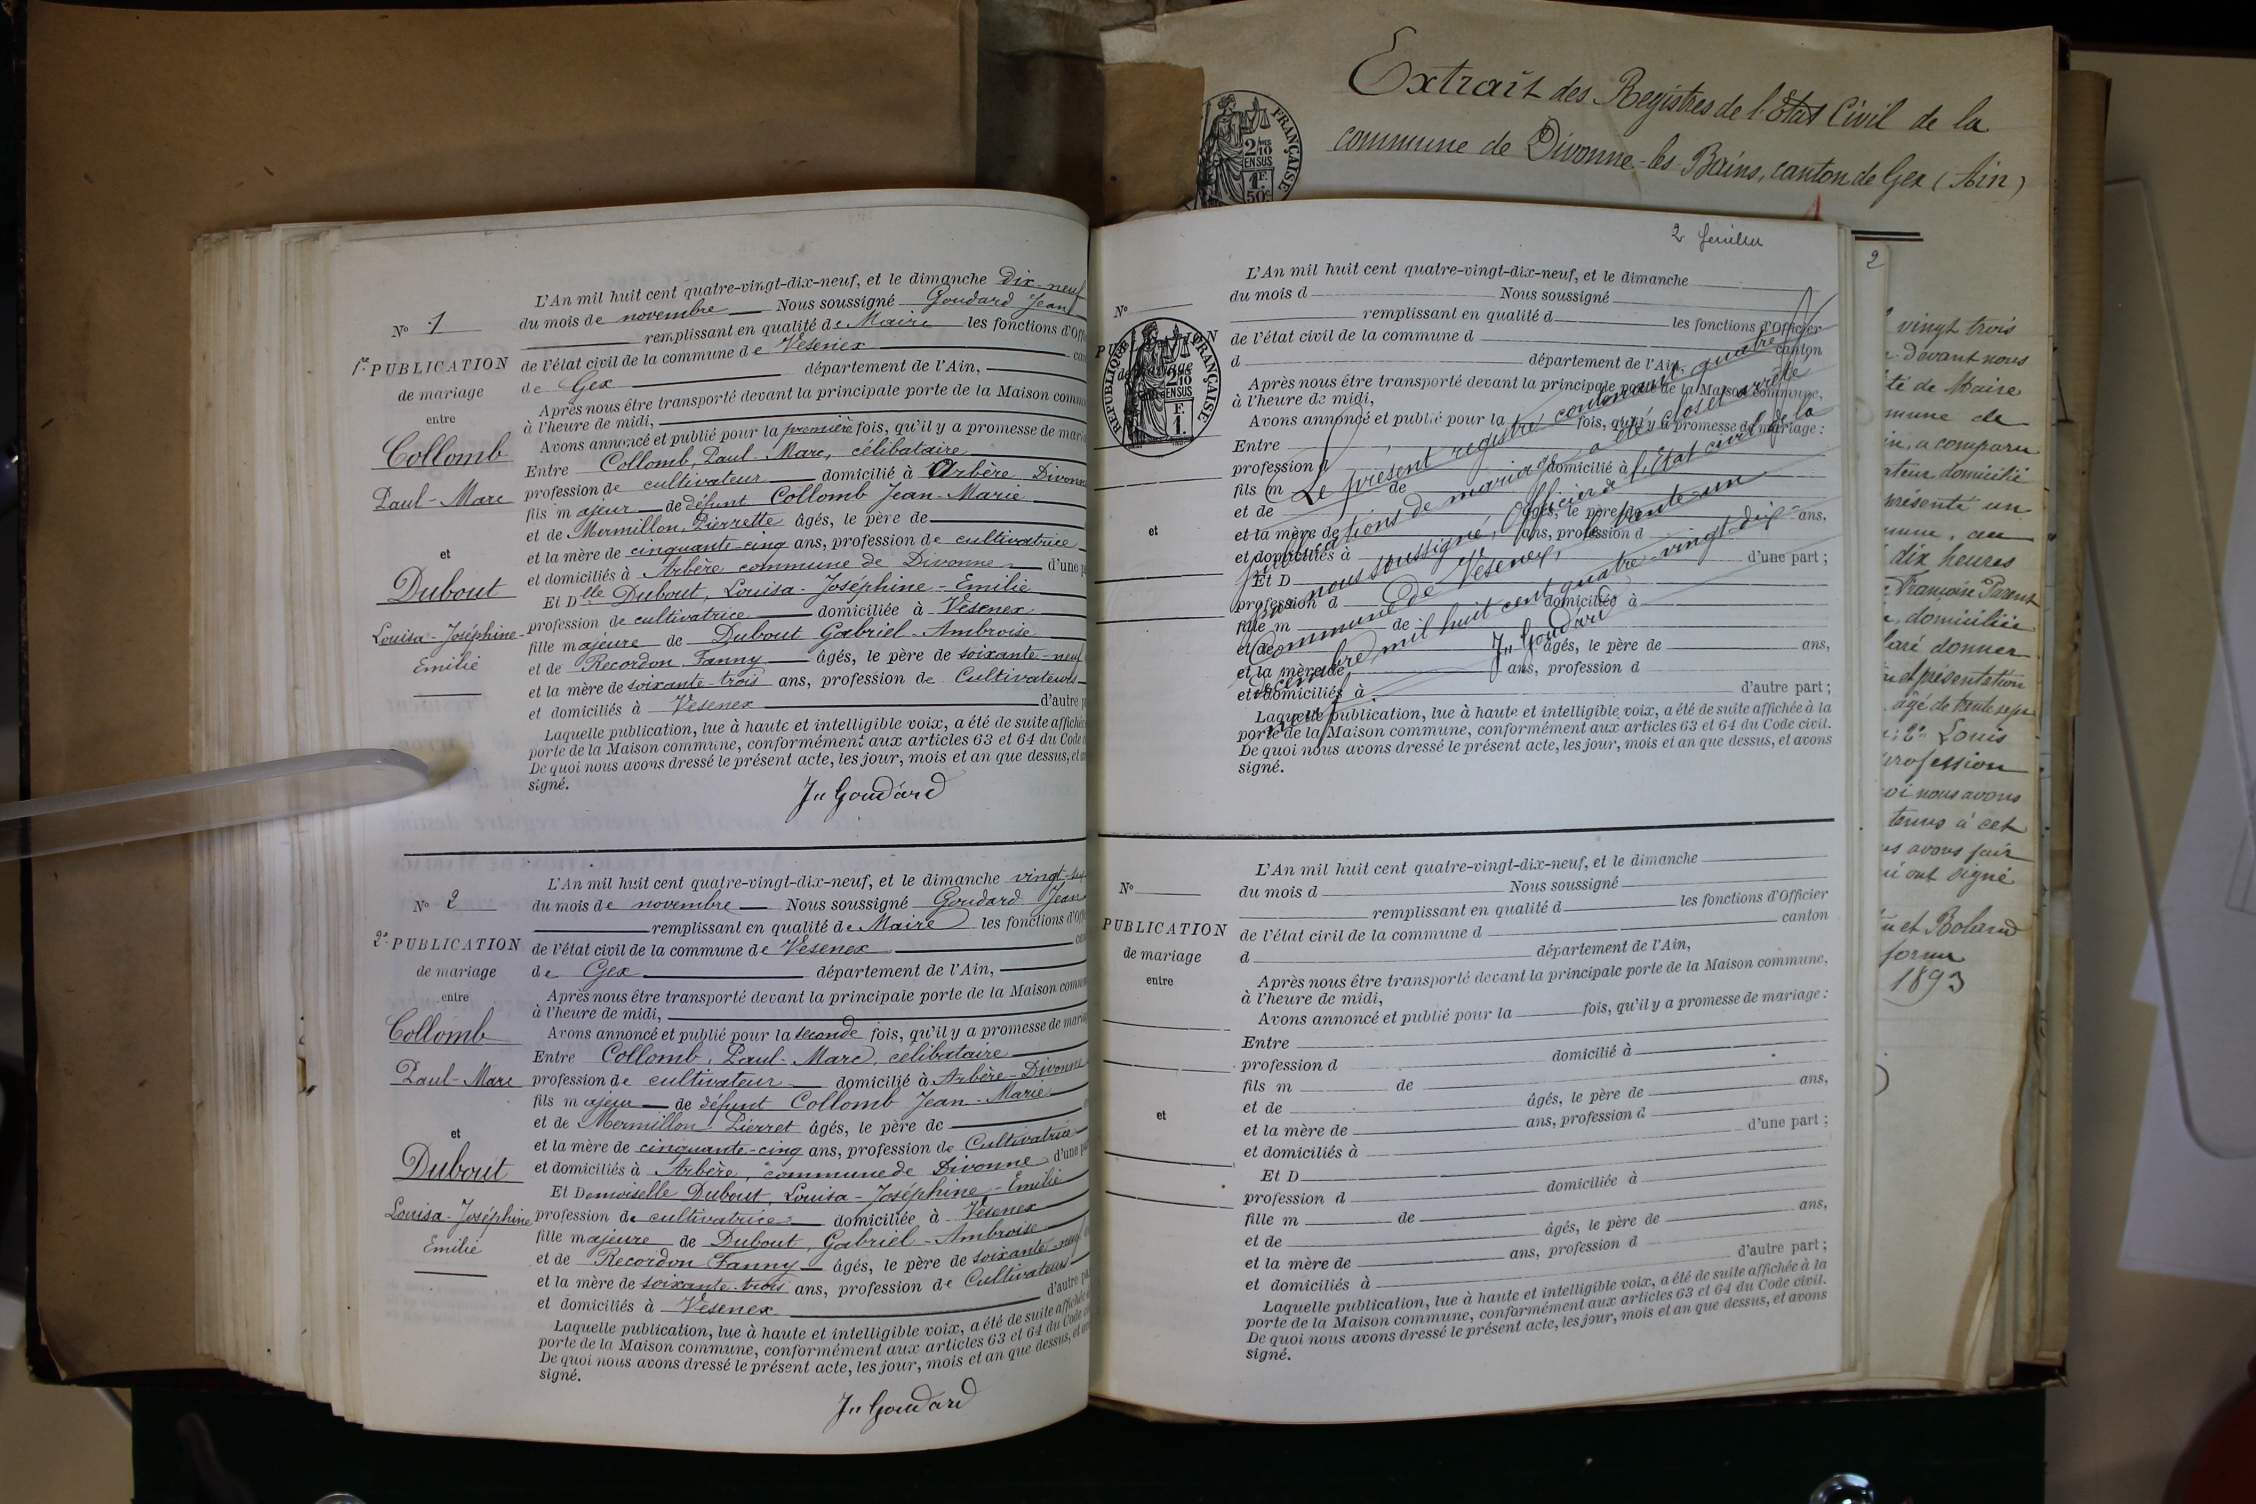 L'An mil huit cent quatre-vingt-dix-neuf, et le dimanche Dix-neuf
No 1 du mois de novembre Nous soussigné Goudard Jean
remplissant en qualité de Maire les fonctions d'Offi
1re PUBLICATION de l'état civil de la commune de Vesenex can
de mariage de Gex département de l'Ain,
entre Après nous être transporté devant la principale porte de la Maison commu
à l'heure de midi,
Avons annoncé et publié pour la première fois, qu'il y a promesse de mari
Collomb Entre Collomb, Paul-Marc, célibataire
Paul-Marc profession de cultivateur domicilié à Arbère Divonne
fils majeur de défunt Collomb Jean-Marie
et de Mermillon, Pierrette âgés, le père de
et et la mère de cinquante-cinq ans, profession de cultivatrice
et domiciliés à Arbère commune de Divonne d'une p
Dubout Et Dlle Dubout, Louisa-Joséphine-Emilie
profession de cultivatrice domiciliée à Vesenex
Louisa-Joséphine- fille majeure de Dubout Gabriel-Ambroise
Emilie et de Recordon Fanny âgés, le père de soixante-neuf
et la mère de soixante-trois ans, profession de Cultivateurs
et domiciliés à Vesenex d'autre p
Laquelle publication, lue à haute et intelligible voix, a été de suite affichée
porte de la Maison commune, conformément aux articles 63 et 64 du Code c
De quoi nous avons dressé le présent acte, les jour, mois et an que dessus, et av
signé.
Jn Goudard
L'An mil huit cent quatre-vingt-dix-neuf, et le dimanche vingt-six
No 2 du mois de novembre Nous soussigné Goudard Jean
remplissant en qualité de Maire les fonctions d'Offi
2e PUBLICATION de l'état civil de la commune de Vesenex can
de mariage de Gex département de l'Ain,
entre Après nous être transporté devant la principale porte de la Maison commun
à l'heure de midi,
Collomb Avons annoncé et publié pour la seconde fois, qu'il y a promesse de maria
Entre Collomb, Paul-Marc, célibataire
Paul-Marc profession de cultivateur domicilié à Arbère-Divonne
fils majeur de défunt Collomb Jean-Marie
et de Mermillon Pierret âgés, le père de
et et la mère de cinquante-cinq ans, profession de Cultivatrice
Dubout et domiciliés à Arbère, commune de Divonne d'une pa
Et Demoiselle Dubout, Louisa-Joséphine-Emilie
Louisa-Joséphine profession de cultivatrice domiciliée à Vesenex
Emilie fille majeure de Dubout, Gabriel-Ambroise
et de Recordon Fanny âgés, le père de soixante-neuf
et la mère de soixante-trois ans, profession de Cultivateurs
et domiciliés à Vesenex d'autre pa
Laquelle publication, lue à haute et intelligible voix, a été de suite affichée
porte de la Maison commune, conformément aux articles 63 et 64 du Code c
De quoi nous avons dressé le présent acte, les jour, mois et an que dessus, et av
signé.
Jn Goudard
Extrait des Registres de l'Etat Civil de la
commune de Divonne-les-Bains, canton de Gex (Ain)
FRANÇAISE
2/10
EN SUS
1F.
50c
2
L'An mil huit cent quatre-vingt-dix-neuf, et le dimanche
No du mois d Nous soussigné
remplissant en qualité d les fonctions d'Officier
de l'état civil de la commune d
d département de l'Ain, canton
RÉPUBLIQUE FRANÇAISE
2/10
EN SUS
1F.
Après nous être transporté devant la principale porte de la Maison commune,
à l'heure de midi,
Avons annoncé et publié pour la fois, qu'il y a promesse de mariage :
Entre
profession d domicilié à
fils m de
et de âgés, le père de ans,
et et la mère de ans, profession d
et domiciliés à d'une part ;
Et D
profession d domiciliée à
fille m de
et de âgés, le père de ans,
et la mère de ans, profession d
et domiciliés à d'autre part ;
Le présent registre contenant quatre
publications de mariage a été clos et arrêté
par nous soussigné, Officier de l'état civil de la
Commune de Vesenex, le trente un
décembre mil huit cent quatre vingt-dix-
neuf
Jn Goudard
Laquelle publication, lue à haute et intelligible voix, a été de suite affichée à la
porte de la Maison commune, conformément aux articles 63 et 64 du Code civil.
De quoi nous avons dressé le présent acte, les jour, mois et an que dessus, et avons
signé.
L'An mil huit cent quatre-vingt-dix-neuf, et le dimanche
No du mois d Nous soussigné
remplissant en qualité d les fonctions d'Officier
PUBLICATION de l'état civil de la commune d canton
de mariage d département de l'Ain,
entre Après nous être transporté devant la principale porte de la Maison commune,
à l'heure de midi,
Avons annoncé et publié pour la fois, qu'il y a promesse de mariage :
Entre
profession d domicilié à
fils m de
et de âgés, le père de ans,
et et la mère de ans, profession d
et domiciliés à d'une part ;
Et D
profession d domiciliée à
fille m de
et de âgés, le père de ans,
et la mère de ans, profession d
et domiciliés à d'autre part ;
Laquelle publication, lue à haute et intelligible voix, a été de suite affichée à la
porte de la Maison commune, conformément aux articles 63 et 64 du Code civil.
De quoi nous avons dressé le présent acte, les jour, mois et an que dessus, et avons
signé.
2
vingt trois
devant nous
té de Maire
mune de
in, a comparu
ateur domicilié
présenté un
mune, au
dix heures
Françoise Parent
domiciliée
laré donner
et présentation
âgé de trente sept
2o Louis
profession
oi nous avons
tenus à cet
us avons fait
ui ont signé
et Boland
forme
1893